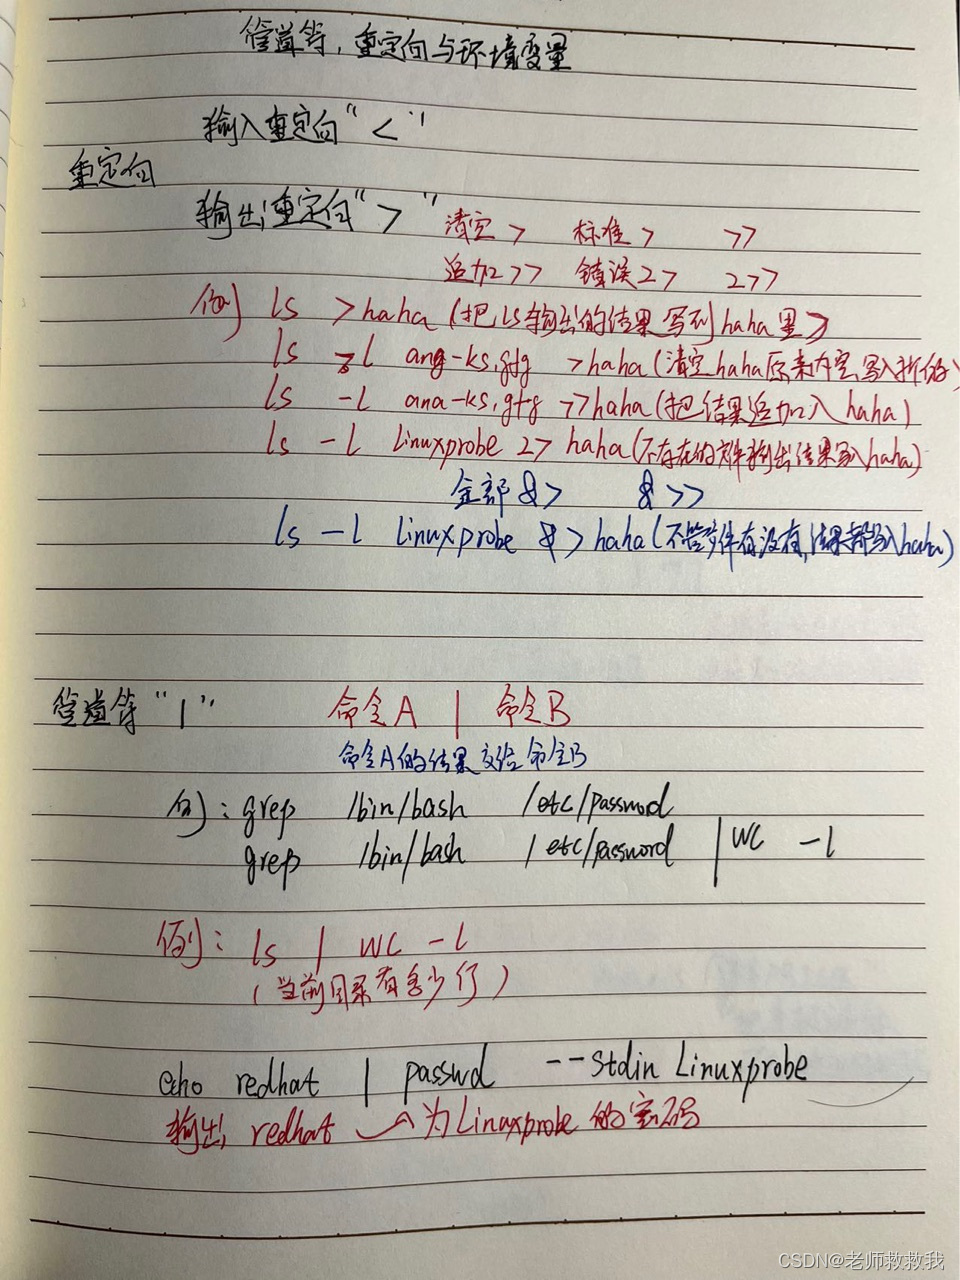 管道符，重定向与环境变量
输入重定向"<"
重定向
输出重定向">" 清空 > 标准 > >>
追加 >> 错误 2> 2>>
例) ls >haha (把ls输出的结果写到haha里)
ls -l ana-ks.gfg >haha (清空haha原来内容,写入新的)
ls -l ana-ks.gfg >>haha (把结果追加入haha)
ls -l linuxprobe 2> haha (不存在的文件输出结果写入haha)
全部 &> &>>
ls -l linuxprobe &> haha (不管文件有没有,结果都写入haha)
管道符"|" 命令A | 命令B
命令A的结果交给命令B
例: grep /bin/bash /etc/passwd
grep /bin/bash /etc/password | wc -l
例: ls | wc -l
(当前目录有多少行)
echo redhat | passwd --stdin Linuxprobe
输出 redhat 为Linuxprobe的密码
CSDN@老师救救我